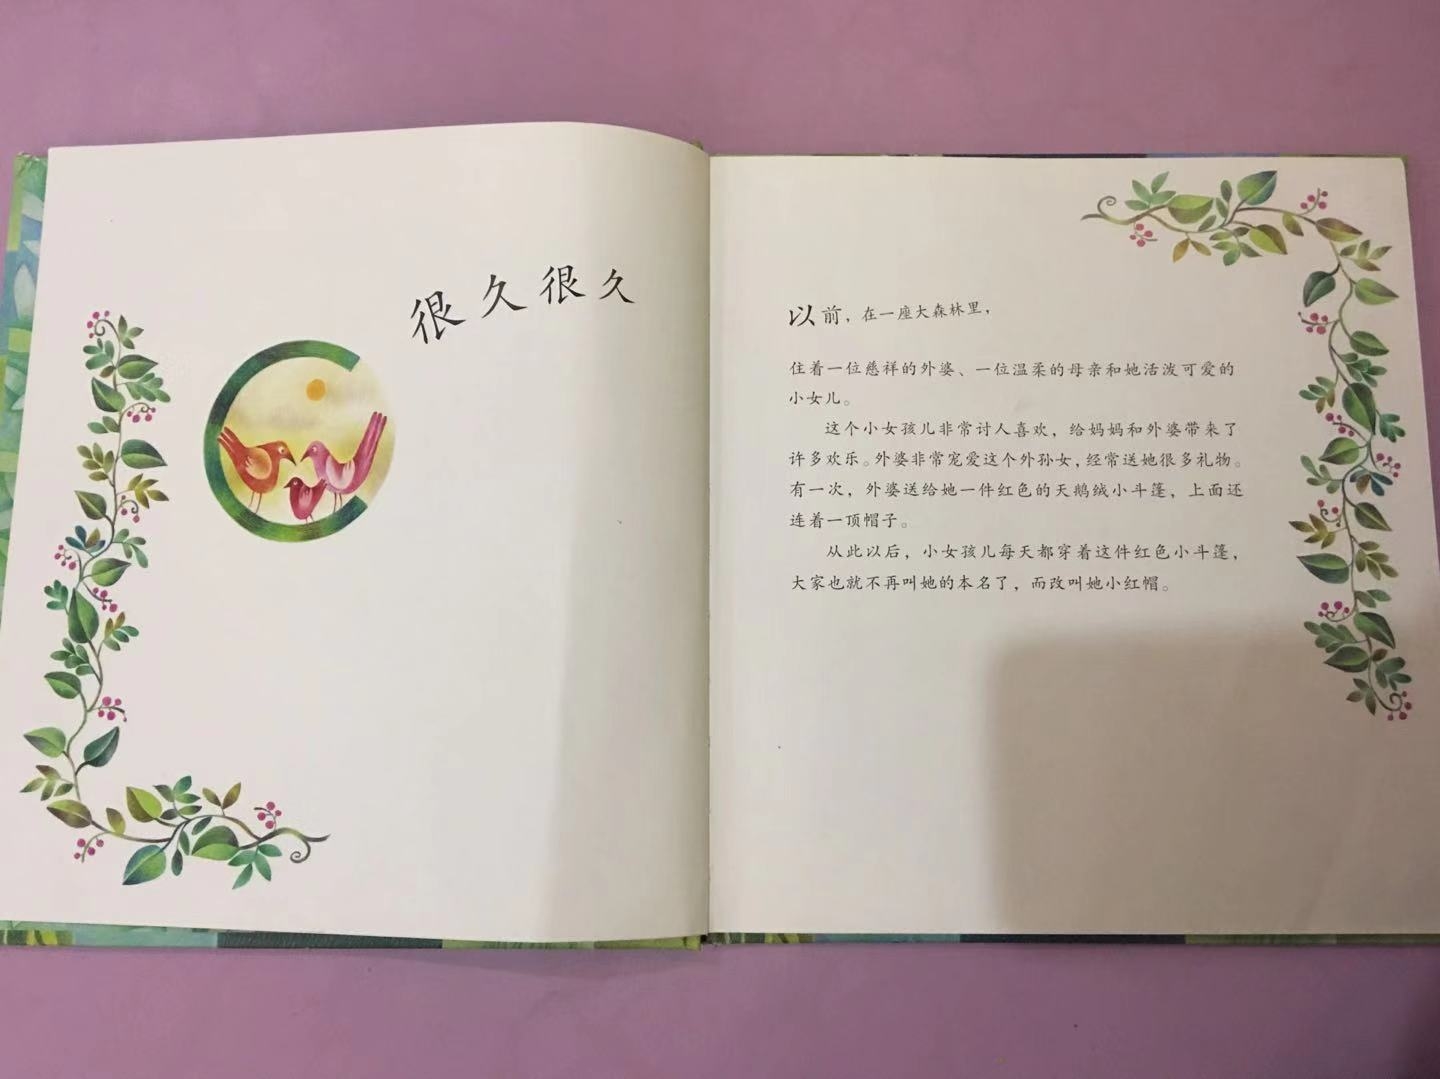 很久很久
以前，在一座大森林里，
住着一位慈祥的外婆、一位温柔的母亲和她活泼可爱的
小女儿。
这个小女孩儿非常讨人喜欢，给妈妈和外婆带来了
许多欢乐。外婆非常宠爱这个外孙女，经常送她很多礼物。
有一次，外婆送给她一件红色的天鹅绒小斗篷，上面还
连着一顶帽子。
从此以后，小女孩儿每天都穿着这件红色小斗篷，
大家也就不再叫她的本名了，而改叫她小红帽。